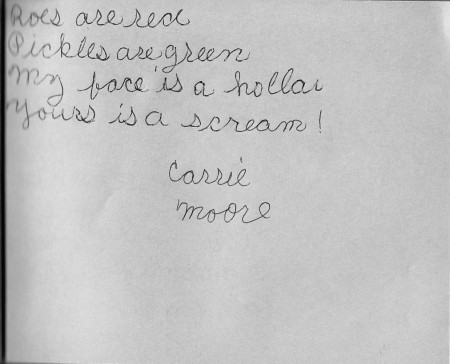 Roes are red
Pickles are green
My face is a hollar
Yours is a scream!
Carrie
Moore